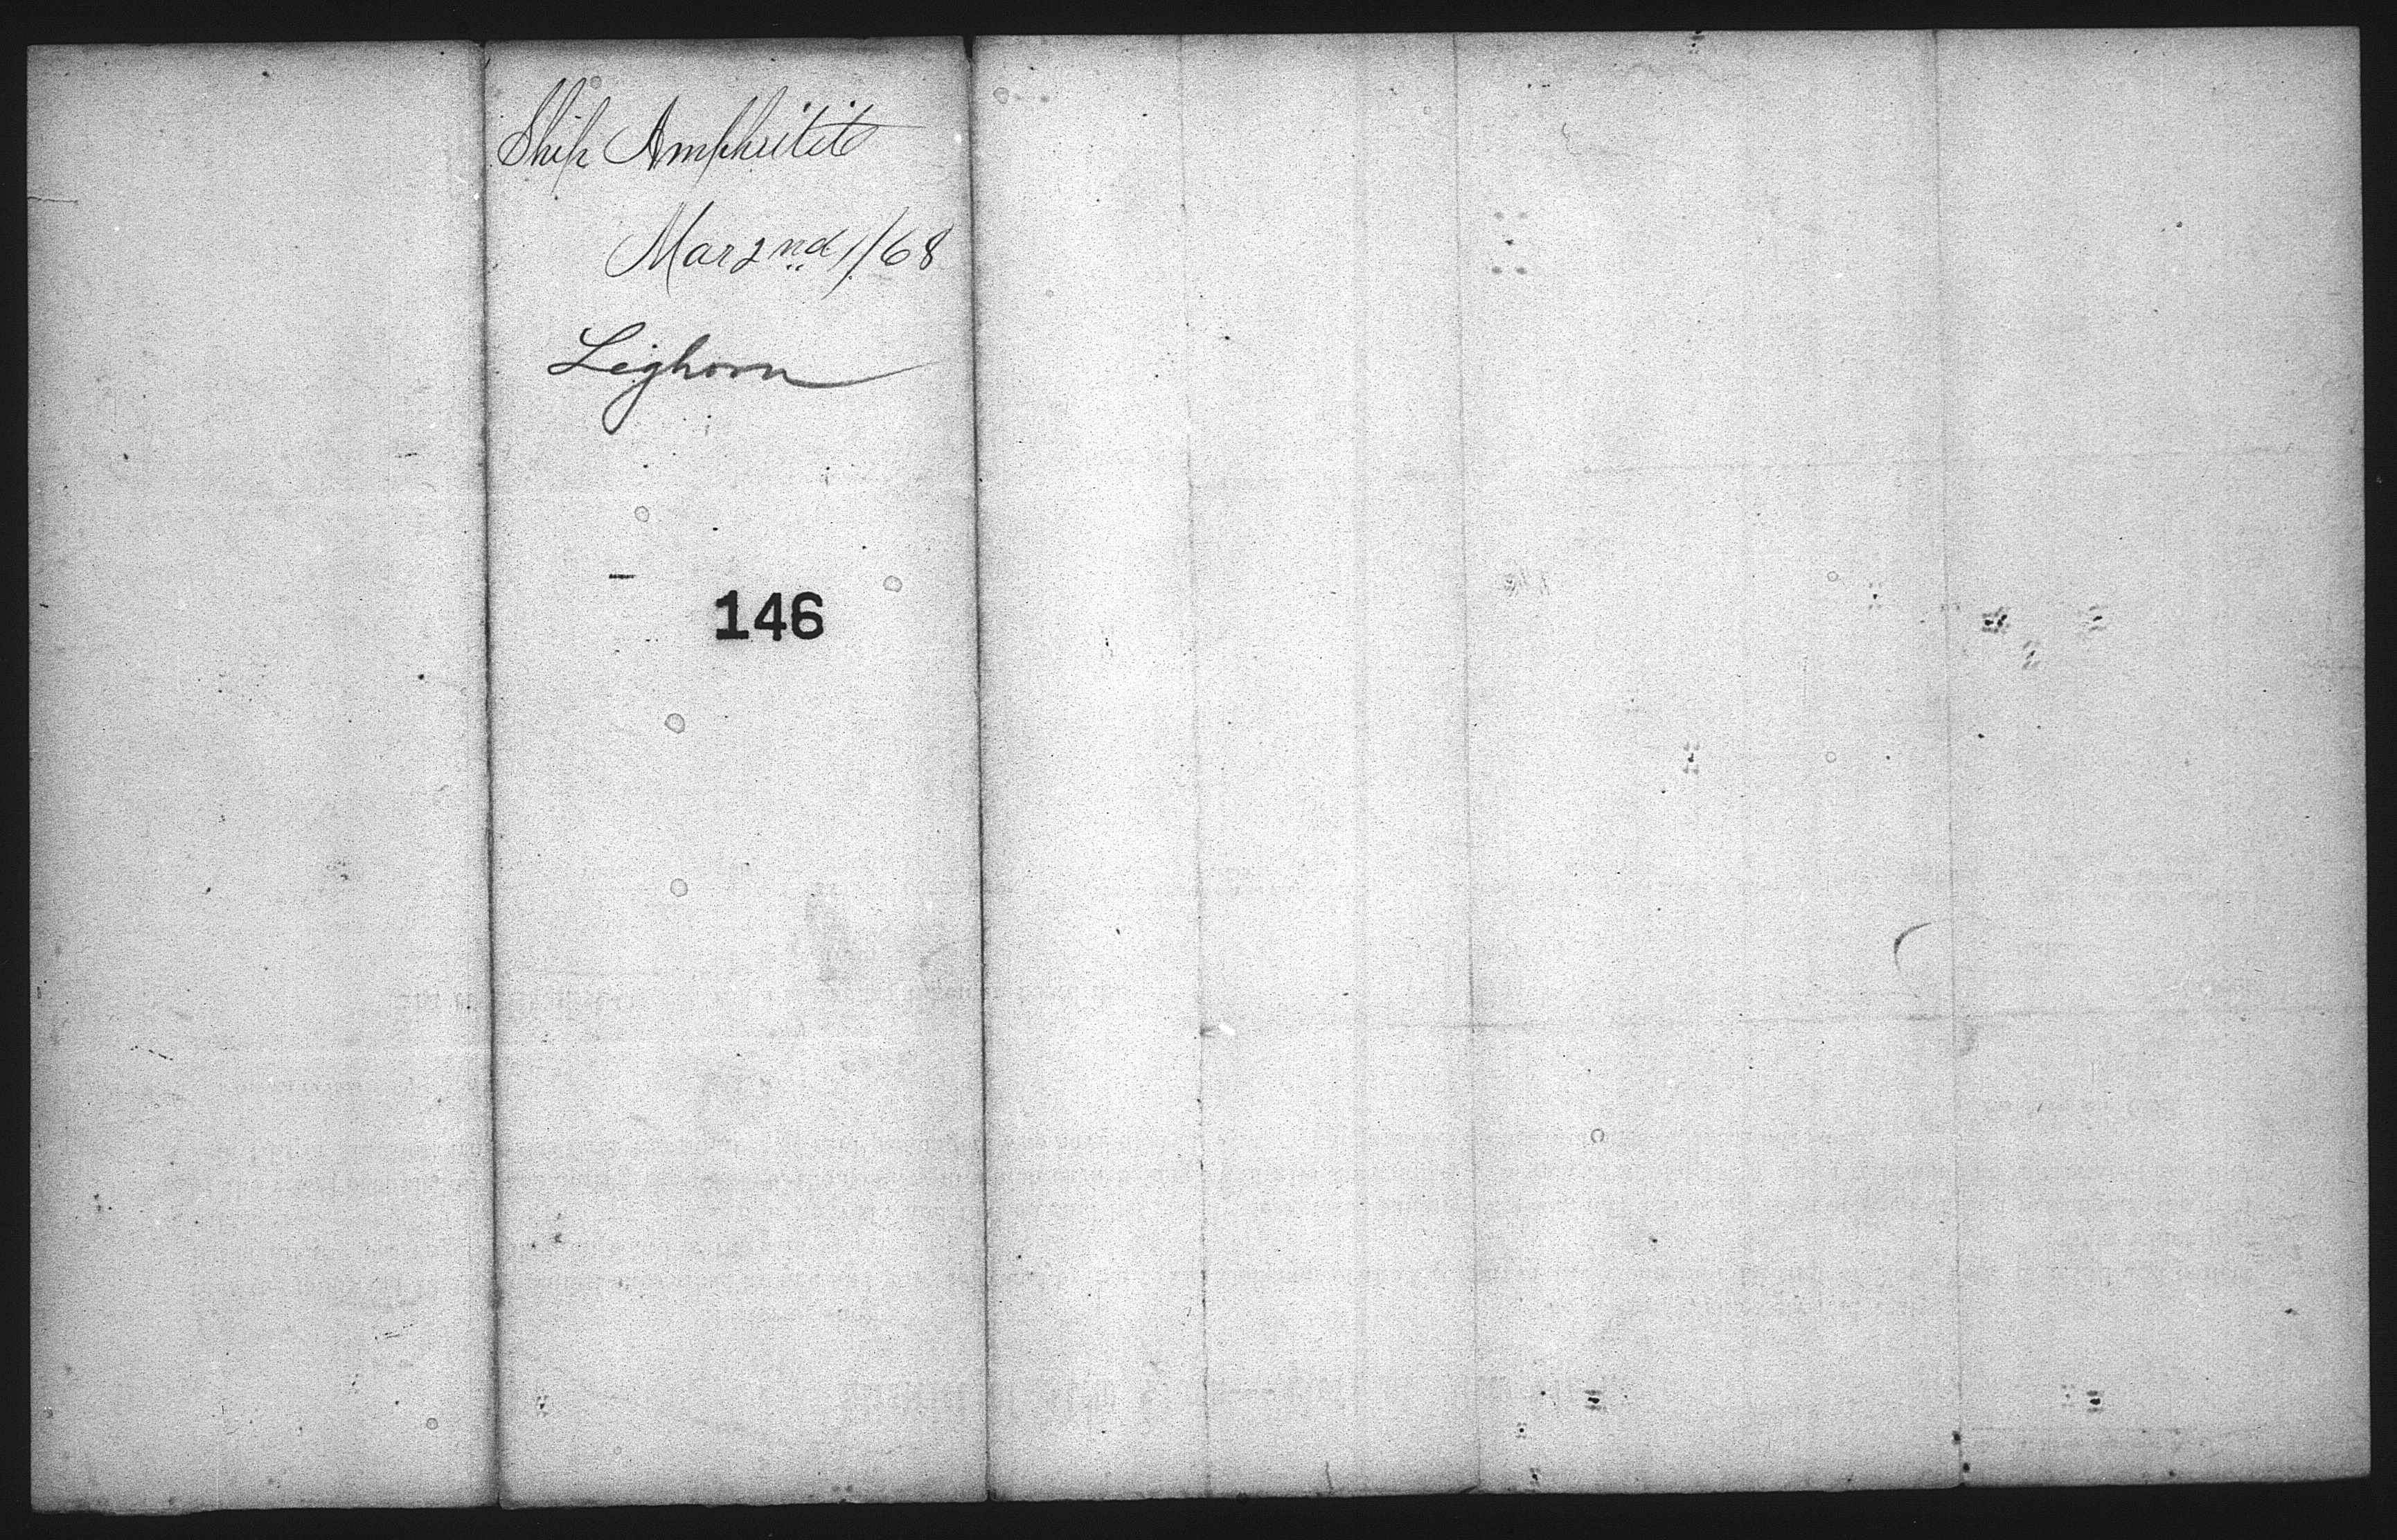 Ship Amphitite
Mar 2nd /68
Leghorn
146